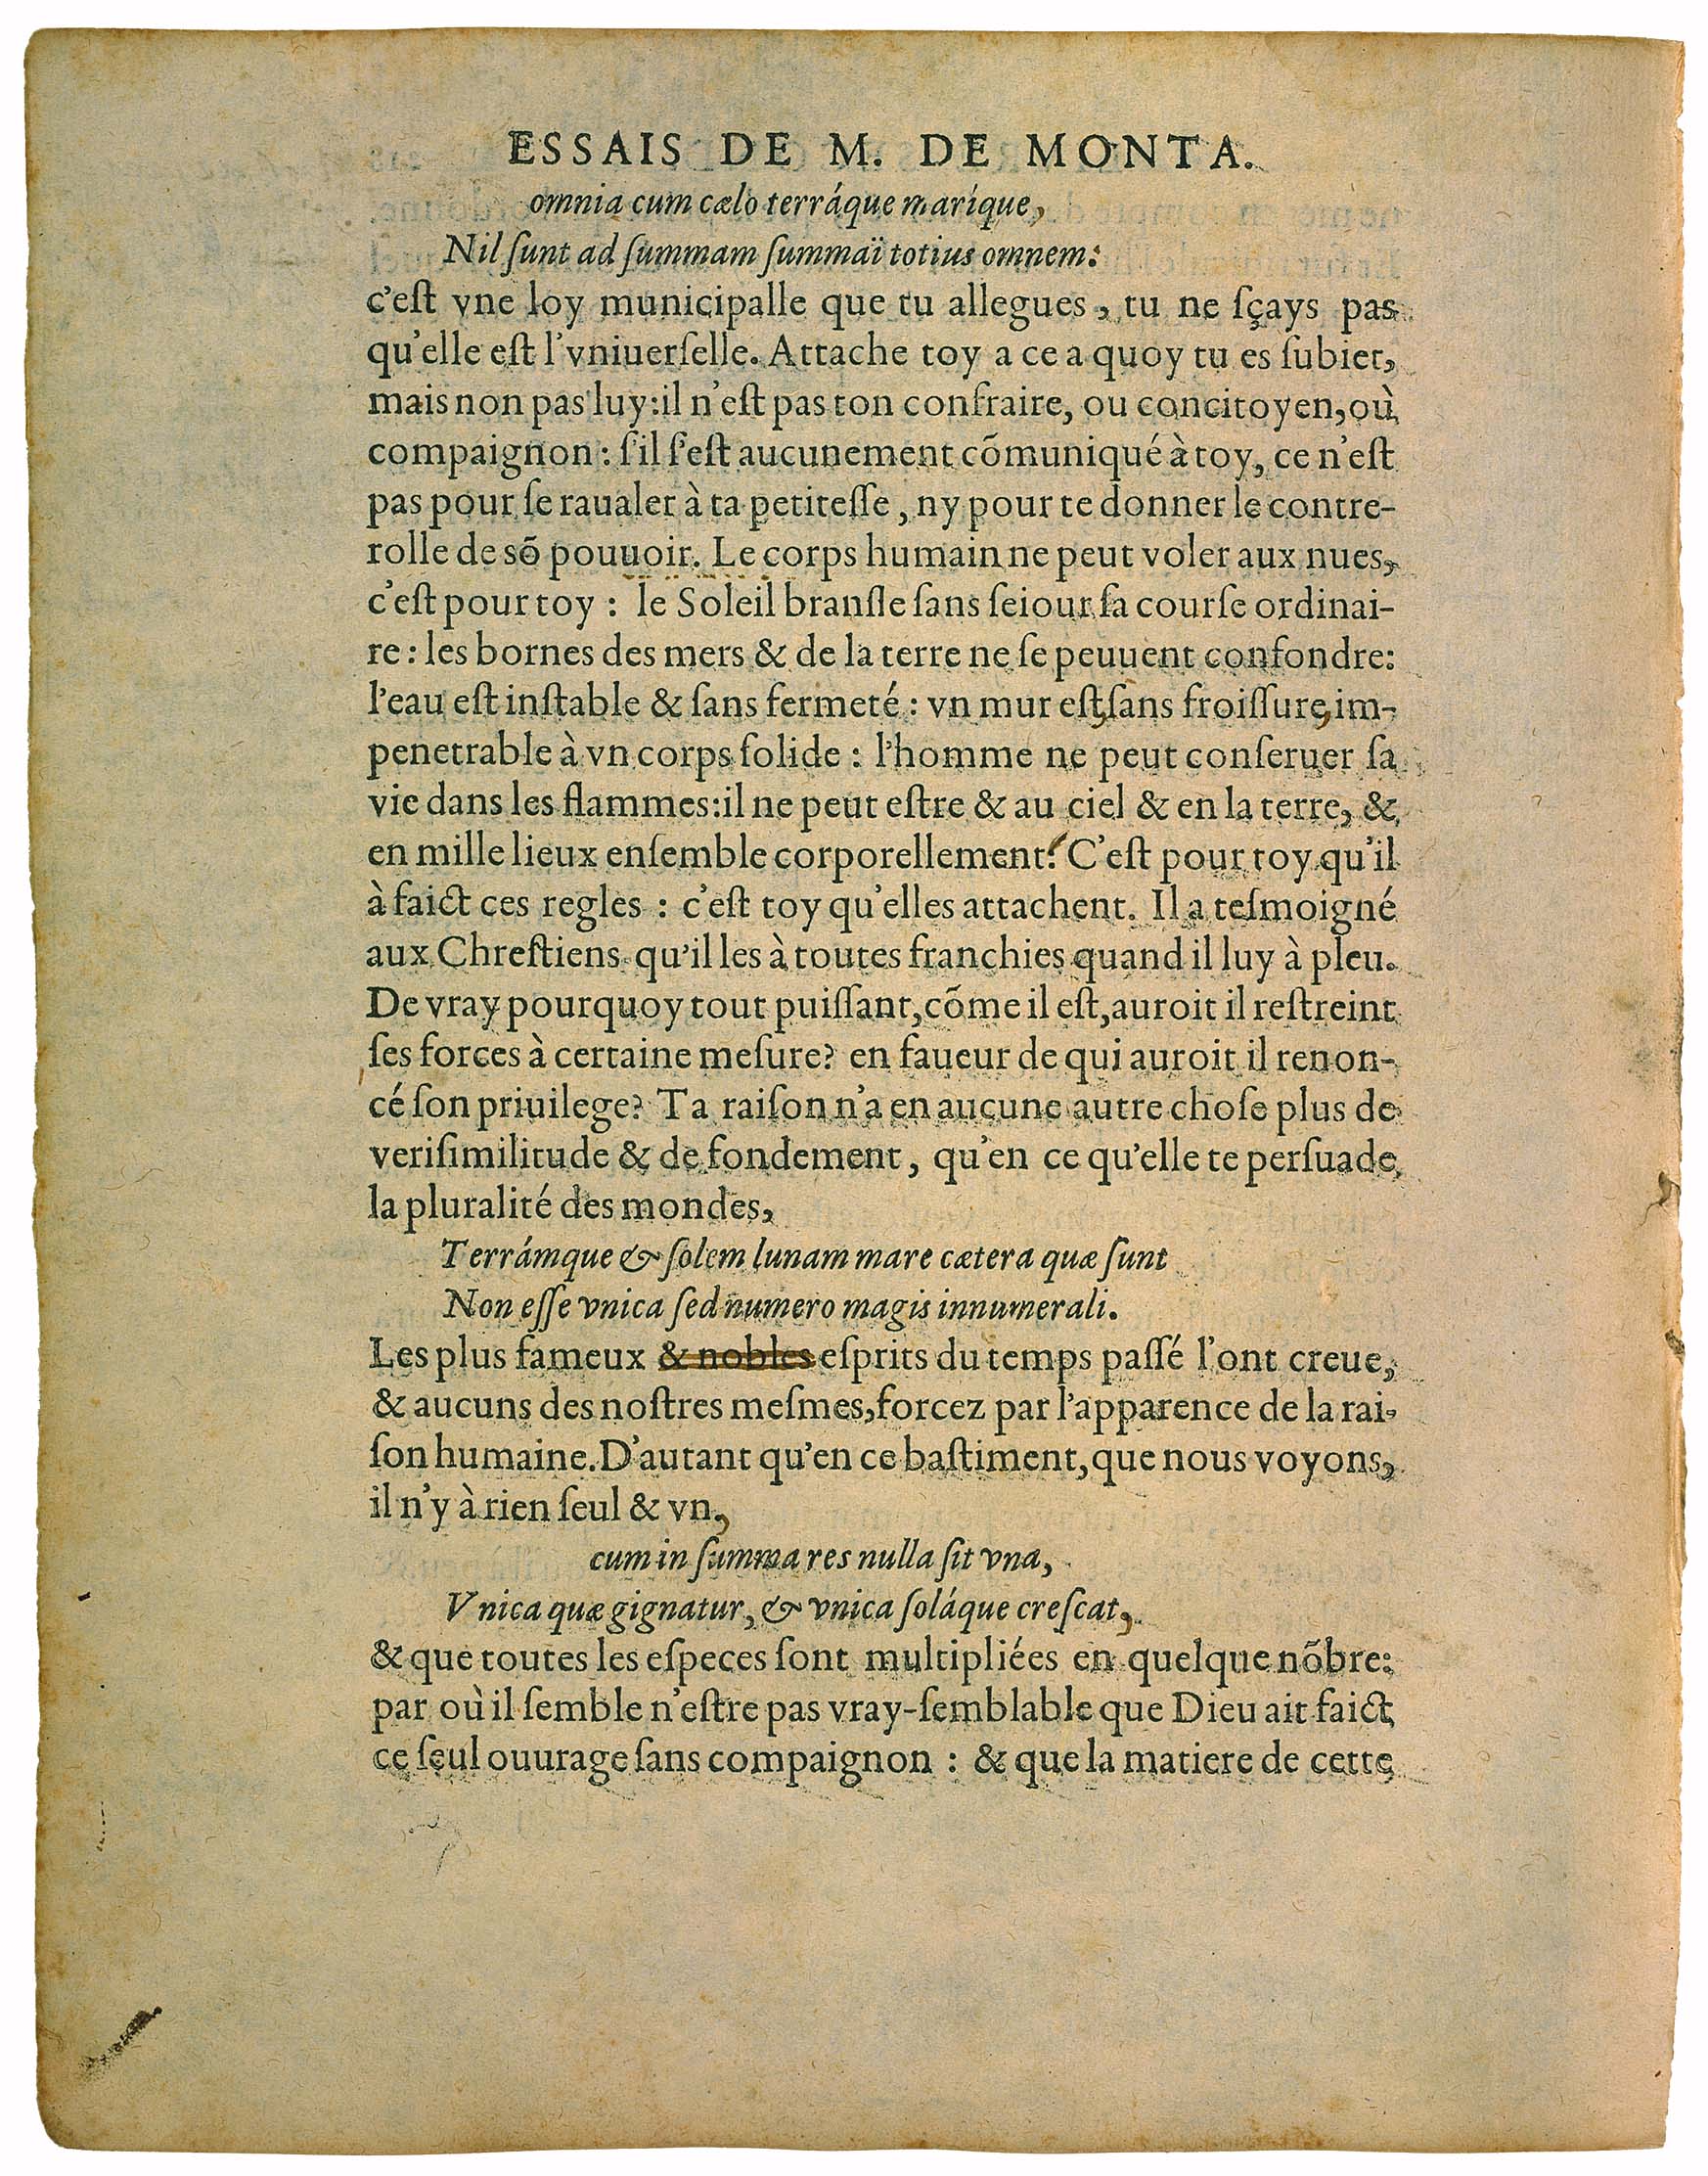 ESSAIS DE M. DE MONTA.
omnia cum cælo terráque maríque,
Nil ſunt ad ſummam ſummaï totius omnem:
c'eſt vne loy municipalle que tu allegues, tu ne ſçays pas
qu'elle eſt l'vniuerſelle. Attache toy a ce a quoy tu es ſubiet,
mais non pas luy: il n'eſt pas ton confraire, ou concitoyen, où
compaignon: ſ'il ſ'eſt aucunement cõmuniqué à toy, ce n'eſt
pas pour ſe raualer à ta petiteſſe, ny pour te donner le contre-
rolle de sõ pouuoir. Le corps humain ne peut voler aux nues,
c'eſt pour toy: le Soleil branſle ſans ſeiour ſa courſe ordinai-
re: les bornes des mers & de la terre ne ſe peuuent confondre:
l'eau eſt inſtable & ſans fermeté: vn mur eſt, ſans froiſſure, im-
penetrable à vn corps ſolide: l'homme ne peut conſeruer ſa
vie dans les flammes: il ne peut eſtre & au ciel & en la terre, &
en mille lieux enſemble corporellement. C'eſt pour toy qu'il
à faict ces regles: c'eſt toy qu'elles attachent. Il a teſmoigné
aux Chreſtiens qu'il les à toutes franchies quand il luy à pleu.
De vray pourquoy tout puiſſant, cõme il eſt, auroit il reſtreint
ſes forces à certaine meſure? en faueur de qui auroit il renon-
cé ſon priuilege? Ta raiſon n'a en aucune autre choſe plus de
veriſimilitude & de fondement, qu'en ce qu'elle te perſuade
la pluralité des mondes,
Terrámque & ſolem lunam mare cætera quæ ſunt
Non eſſe vnica ſed numero magis innumerali.
Les plus fameux & nobles eſprits du temps paſſé l'ont creue,
& aucuns des noſtres meſmes, forcez par l'apparence de la rai-
ſon humaine. D'autant qu'en ce baſtiment, que nous voyons,
il n'y à rien ſeul & vn,
cum in ſumma res nulla ſit vna,
Vnica quæ gignatur, & vnica ſoláque creſcat,
& que toutes les eſpeces ſont multipliées en quelque nõbre:
par où il ſemble n'eſtre pas vray-ſemblable que Dieu ait faict
ce ſeul ouurage ſans compaignon: & que la matiere de cette